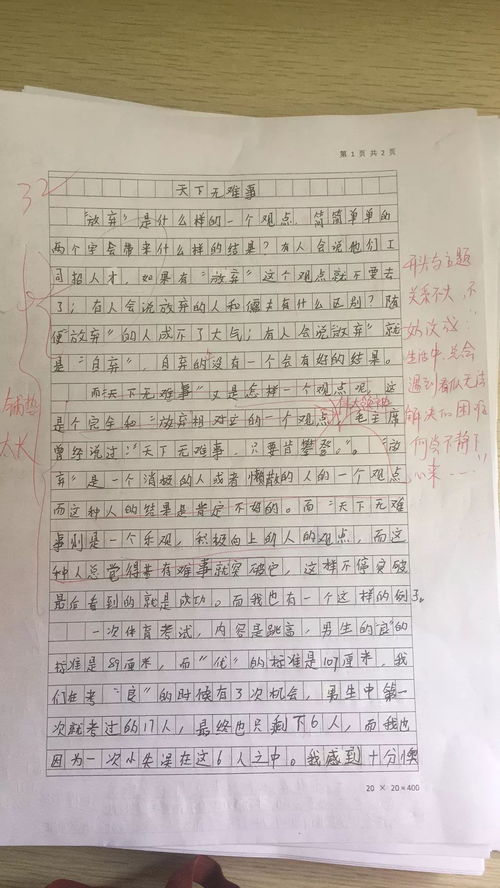 第 1 页 共 2 页
32
天下无难事
“放弃”是什么样的一个观点，简简单单的
两个字会带来什么样的结果？有人会说他们工
司招人才，如果有“放弃”这个观点就不要去
了；有人会说放弃的人和懦夫有什么区别？随
便“放弃”的人成不了大气；有人会说“放弃”就
是“自弃”，自弃的没有一个会有好的结果。
而“天下无难事”又是怎样一个观点呢，这
是个完全和“放弃”相对立的一个观点，毛主席
曾经说过：“天下无难事，只要肯攀登。”。“放
弃”是一个消极的人或者懒散的人的一个观点
而这种人的结果是肯定不好的。而“天下无难
事”则是一个乐观，积极向上的人的观点，而这
种人总觉得来有难事就突破它，这样不停突破
最后看到的就是成功。而我也有一个这样的例子。
一次体育考试，内容是跳高，男生的“良”的
标准是89厘米，而“优”的标准是107厘米，我
们在考“良”的时候有3次机会，男生中第一
次就考过的17人，最终也只剩下6人，而我也
因为一次小失误在这6人之中。我感到十分懊
20 × 20 = 400
开头与主题
关系不大，不
妨改成：
生活中，总会
遇到看似无法
解决的困难
何尝不静下
心来……
铺垫
太长